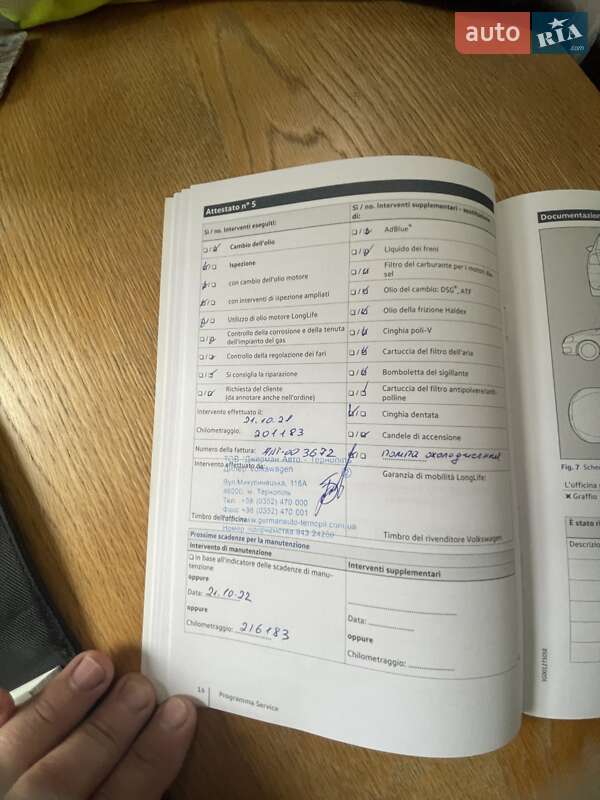 auto RIA.com
Attestato n° 5
Sì / no. Interventi eseguiti:
Cambio dell'olio
Ispezione
con cambio dell'olio motore
con interventi di ispezione ampliati
Utilizzo di olio motore LongLife
Controllo della corrosione e della tenuta
dell'impianto del gas
Controllo della regolazione dei fari
Si consiglia la riparazione
Richiesta del cliente
(da annotare anche nell'ordine)
Intervento effettuato il:
21.10.21
Chilometraggio: 201183
Numero della fattura: 003672
ТОВ "Джерман Авто - Тернопіль"
Intervento effettuato da:
Дилер Volkswagen
вул.Микулинецька, 116А
46000, м. Тернопіль
Тел: +38 (0352) 470 000
Факс: +38 (0352) 470 001
www.germanauto-ternopil.com.ua
Timbro dell'officina
Sì / no. Interventi supplementari - sostituzione
di:
AdBlue®
Liquido dei freni
Filtro del carburante per i motori die-
sel
Olio del cambio: DSG®, ATF
Olio della frizione Haldex
Cinghia poli-V
Cartuccia del filtro dell'aria
Bomboletta del sigillante
Cartuccia del filtro antipolvere/anti-
polline
Cinghia dentata
Candele di accensione
Помпа охолодження
Garanzia di mobilità LongLife:
Timbro del rivenditore Volkswagen
Prossime scadenze per la manutenzione
Intervento di manutenzione
In base all'indicatore delle scadenze di manu-
tenzione
oppure
Data: 21.10.22
oppure
Chilometraggio: 216183
Interventi supplementari
Data:
oppure
Chilometraggio:
14 Programma Service
Documentazion
Fig. 7
L'officina
Graffio
È stato ri
Descrizio